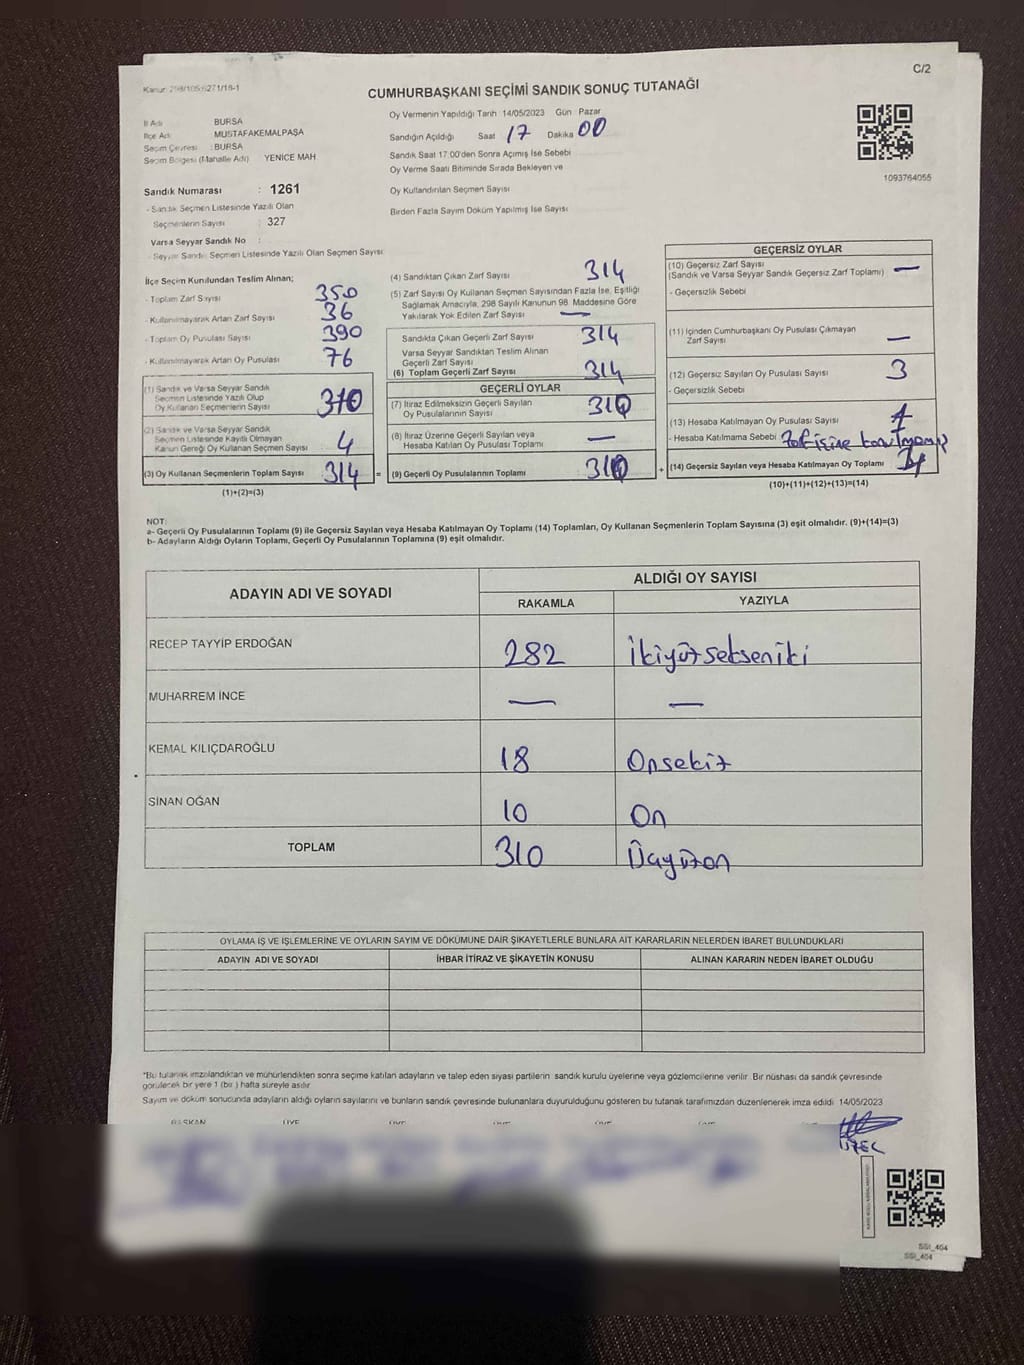 C/2
CUMHURBAŞKANI SEÇİMİ SANDIK SONUÇ TUTANAĞI
İl Adı BURSA
İlçe Adı MUSTAFAKEMALPAŞA
Seçim Çevresi : BURSA
Seçim Bölgesi (Mahalle Adı) YENICE MAH
Sandık Numarası : 1261
- Sandık Seçmen Listesinde Yazılı Olan
Seçmenlerin Sayısı : 327
Varsa Seyyar Sandık No :
- Seyyar Sandık Seçmen Listesinde Yazılı Olan Seçmen Sayısı
Oy Vermenin Yapıldığı Tarih 14/05/2023 Gün Pazar
Sandığın Açıldığı Saat 17 Dakika 00
Sandık Saat 17:00'den Sonra Açımış İse Sebebi
Oy Verme Saati Bitiminde Sırada Bekleyen ve
Oy Kullandırılan Seçmen Sayısı
Birden Fazla Sayım Döküm Yapılmış İse Sayısı
1093764055
İlçe Seçim Kurulundan Teslim Alınan;
- Toplam Zarf Sayısı 350
- Kullanılmayarak Artan Zarf Sayısı 36
- Toplam Oy Pusulası Sayısı 390
- Kullanılmayarak Artan Oy Pusulası 76
(1) Sandık ve Varsa Seyyar Sandık
Seçmen Listesinde Yazılı Olup
Oy Kullanan Seçmenlerin Sayısı 310
(2) Sandık ve Varsa Seyyar Sandık
Seçmen Listesinde Kayıtlı Olmayan
Kanun Gereği Oy Kullanan Seçmen Sayısı 4
(3) Oy Kullanan Seçmenlerin Toplam Sayısı 314 =
(1)+(2)=(3)
(4) Sandıktan Çıkan Zarf Sayısı 314
(5) Zarf Sayısı Oy Kullanan Seçmen Sayısından Fazla İse, Eşitliği
Sağlamak Amacıyla, 298 Sayılı Kanunun 98. Maddesine Göre
Yakılarak Yok Edilen Zarf Sayısı —
Sandıkta Çıkan Geçerli Zarf Sayısı 314
Varsa Seyyar Sandıktan Teslim Alınan
Geçerli Zarf Sayısı
(6) Toplam Geçerli Zarf Sayısı 314
GEÇERLİ OYLAR
(7) İtiraz Edilmeksizin Geçerli Sayılan
Oy Pusulalarının Sayısı 310
(8) İtiraz Üzerine Geçerli Sayılan veya
Hesaba Katılan Oy Pusulası Toplamı —
(9) Geçerli Oy Pusulalarının Toplamı 310 +
GEÇERSİZ OYLAR
(10) Geçersiz Zarf Sayısı
(Sandık ve Varsa Seyyar Sandık Geçersiz Zarf Toplamı) —
- Geçersizlik Sebebi
(11) İçinden Cumhurbaşkanı Oy Pusulası Çıkmayan
Zarf Sayısı —
(12) Geçersiz Sayılan Oy Pusulası Sayısı 3
- Geçersizlik Sebebi
(13) Hesaba Katılmayan Oy Pusulası Sayısı 1
- Hesaba Katılmama Sebebi
(14) Geçersiz Sayılan veya Hesaba Katılmayan Oy Toplamı
(10)+(11)+(12)+(13)=(14)
NOT:
a- Geçerli Oy Pusulalarının Toplamı (9) ile Geçersiz Sayılan veya Hesaba Katılmayan Oy Toplamı (14) Toplamları, Oy Kullanan Seçmenlerin Toplam Sayısına (3) eşit olmalıdır. (9)+(14)=(3)
b- Adayların Aldığı Oyların Toplamı, Geçerli Oy Pusulalarının Toplamına (9) eşit olmalıdır.
ADAYIN ADI VE SOYADI ALDIĞI OY SAYISI
RAKAMLA YAZIYLA
RECEP TAYYİP ERDOĞAN 282 İkiyüzsekseniki
MUHARREM İNCE — —
KEMAL KILIÇDAROĞLU 18 Onsekiz
SİNAN OĞAN 10 On
TOPLAM 310 Üçyüzon
OYLAMA İŞ VE İŞLEMLERİNE VE OYLARIN SAYIM VE DÖKÜMÜNE DAİR ŞİKAYETLERLE BUNLARA AİT KARARLARIN NELERDEN İBARET BULUNDUKLARI
ADAYIN ADI VE SOYADI İHBAR İTİRAZ VE ŞİKAYETİN KONUSU ALINAN KARARIN NEDEN İBARET OLDUĞU
"Bu tutanak imzalandıktan ve mühürlendikten sonra seçime katılan adayların ve talep eden siyasi partilerin sandık kurulu üyelerine veya gözlemcilerine verilir. Bir nüshası da sandık çevresinde
görülecek bir yere 1 (bir ) hafta süreyle asılır
Sayım ve döküm sonucunda adayların aldığı oyların sayılarını ve bunların sandık çevresinde bulunanlara duyurulduğunu gösteren bu tutanak tarafımızdan düzenlenerek imza edildi. 14/05/2023
BAŞKAN ÜYE ÜYE ÜYE ÜYE ÜYE
SSI_404
SSI_404